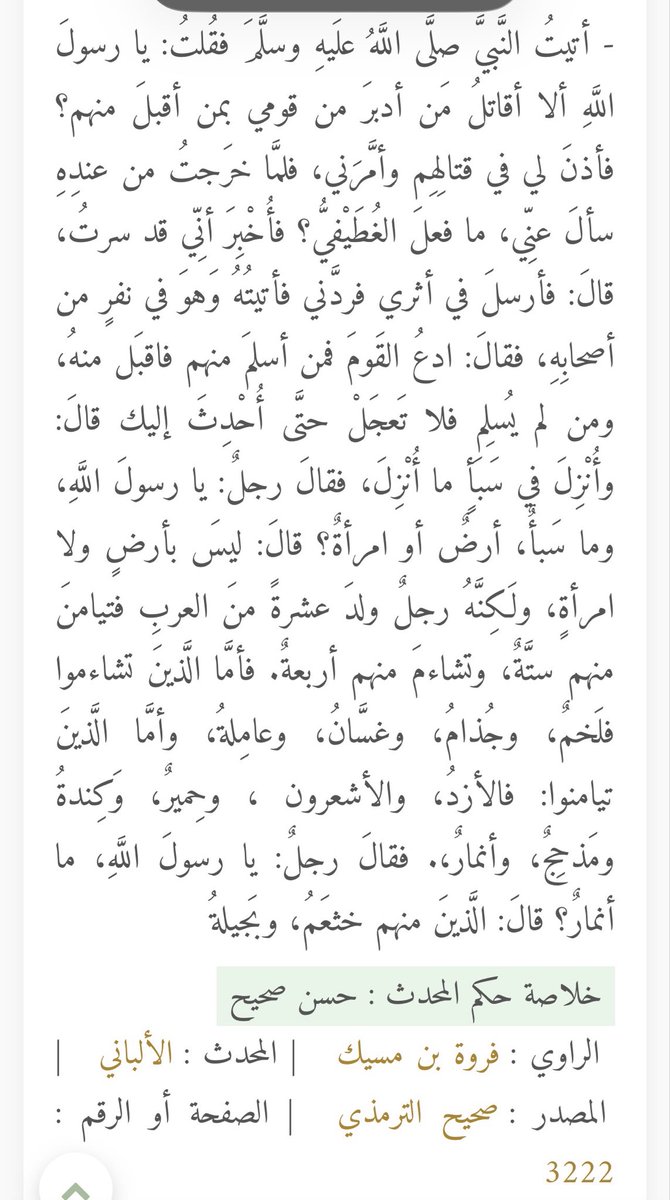 - أتيتُ النَّبيَّ صلَّى اللَّهُ علَيهِ وسلَّمَ فقُلتُ: يا رسولَ
اللَّهِ ألا أقاتلُ مَن أدبرَ من قومي بمن أقبلَ منهم؟
فأذنَ لي في قتالِهِم وأمَّرَني، فلمَّا خرَجتُ من عندِهِ
سألَ عنِّي، ما فعلَ الغُطَيْفيُّ؟ فأُخْبِرَ أنِّي قد سرتُ،
قالَ: فأرسلَ في أثري فردَّني فأتيتُهُ وَهوَ في نفرٍ من
أصحابِهِ، فقالَ: ادعُ القَومَ فمن أسلمَ منهم فاقبَل منهُ،
ومن لم يُسلِم فلا تَعجَلْ حتَّى أُحْدِثَ إليك قالَ:
وأُنْزِلَ في سَبَأٍ ما أُنْزِلَ، فقالَ رجلٌ: يا رسولَ اللَّهِ،
وما سَبأٌ، أرضٌ أو امرأةٌ؟ قالَ: ليسَ بأرضٍ ولا
امرأةٍ، ولَكِنَّهُ رجلٌ ولدَ عشرةً منَ العربِ فتيامنَ
منهم ستَّةٌ، وتشاءمَ منهم أربعةٌ. فأمَّا الَّذينَ تشاءموا
فلَخمٌ، وجُذامُ، وغسَّانُ، وعامِلةُ، وأمَّا الَّذينَ
تيامنوا: فالأزدُ، والأشعرون ، وحِميرٌ، وَكِندةُ
ومَذحِجٌ، وأنمارٌ،. فقالَ رجلٌ: يا رسولَ اللَّهِ، ما
أنمارٌ؟ قالَ: الَّذينَ منهم خثعَمُ، وبَجيلةُ
خلاصة حكم المحدث : حسن صحيح
الراوي : فروة بن مسيك | المحدث : الألباني |
المصدر : صحيح الترمذي | الصفحة أو الرقم :
3222